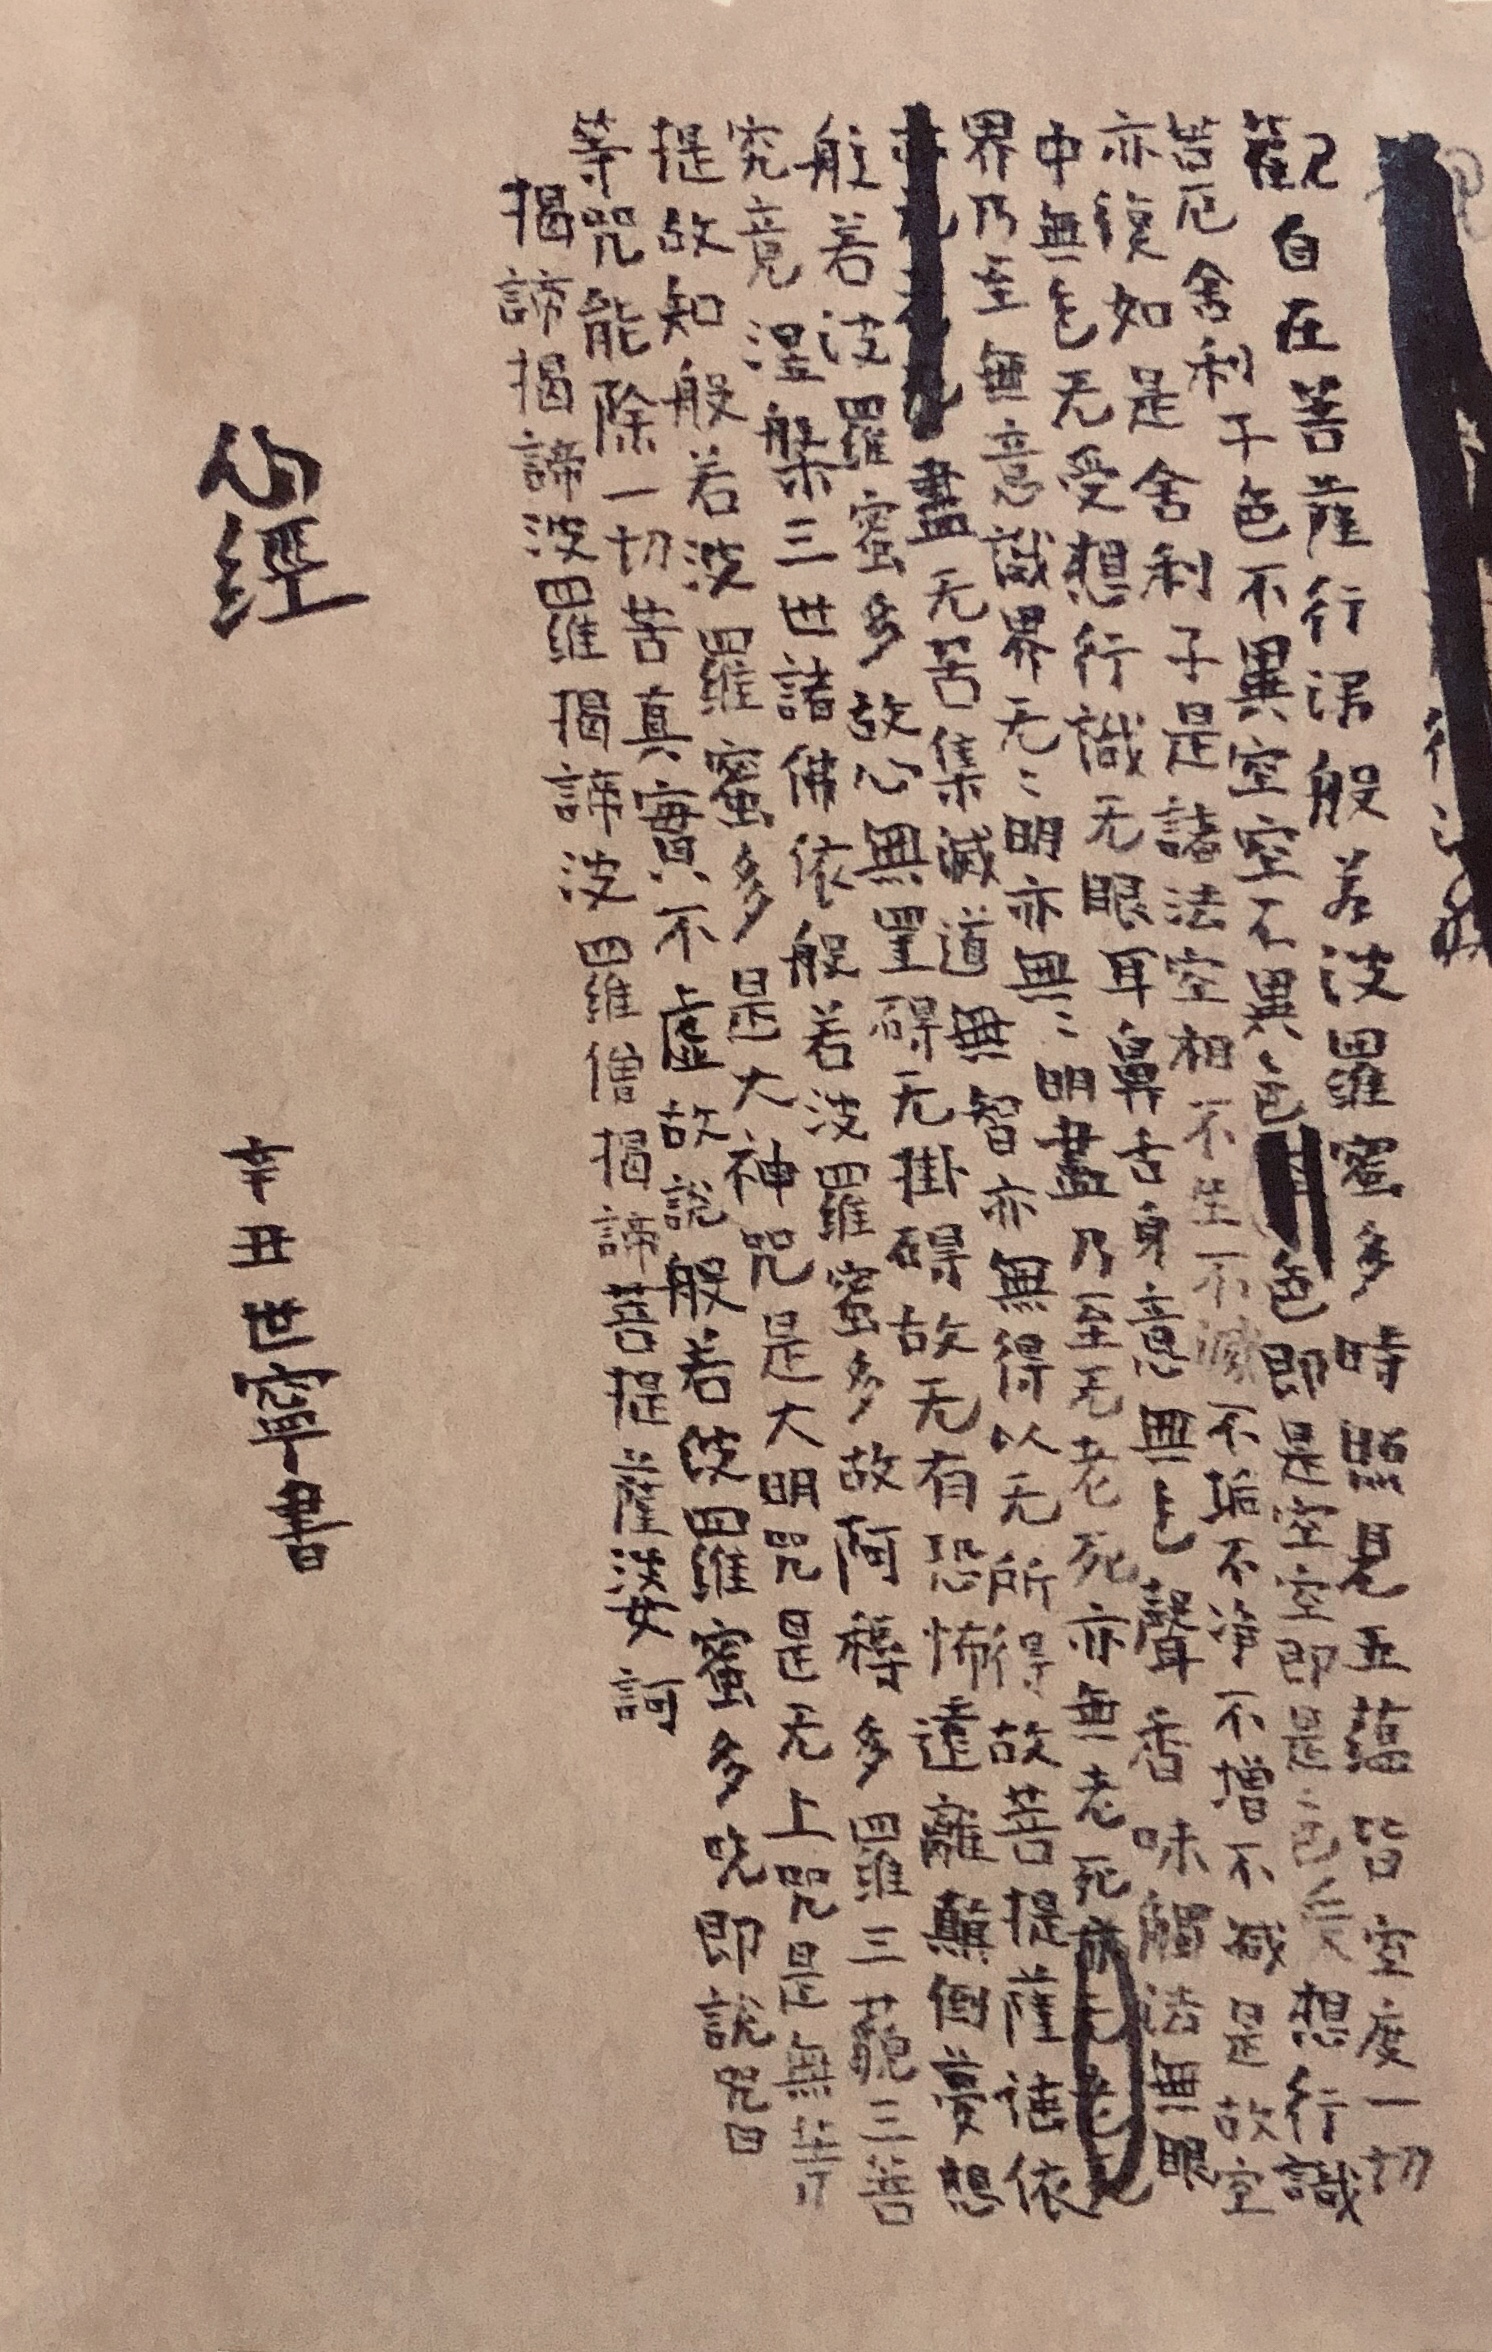 觀自在菩薩行深般若波羅蜜多時照見五蘊皆空度一切
苦厄舍利子色不異空空不異色色即是空空即是色受想行識
亦復如是舍利子是諸法空相不生不滅不垢不淨不增不減是故空
中無色无受想行識无眼耳鼻舌身意無色聲香味觸法無眼
界乃至無意識界无〻明亦無〻明盡乃至无老死亦無老死
盡无苦集滅道無智亦無得以无所得故菩提薩埵依
般若波羅蜜多故心無罣碍无掛碍故无有恐怖遠離顛倒夢想
究竟涅槃三世諸佛依般若波羅蜜多故阿耨多羅三藐三菩
提故知般若波羅蜜多是大神咒是大明咒是无上咒是無等
等咒能除一切苦真實不虛故說般若波羅蜜多咒即說咒曰
揭諦揭諦波羅揭諦波羅僧揭諦菩提薩婆訶
心經
辛丑世寧書